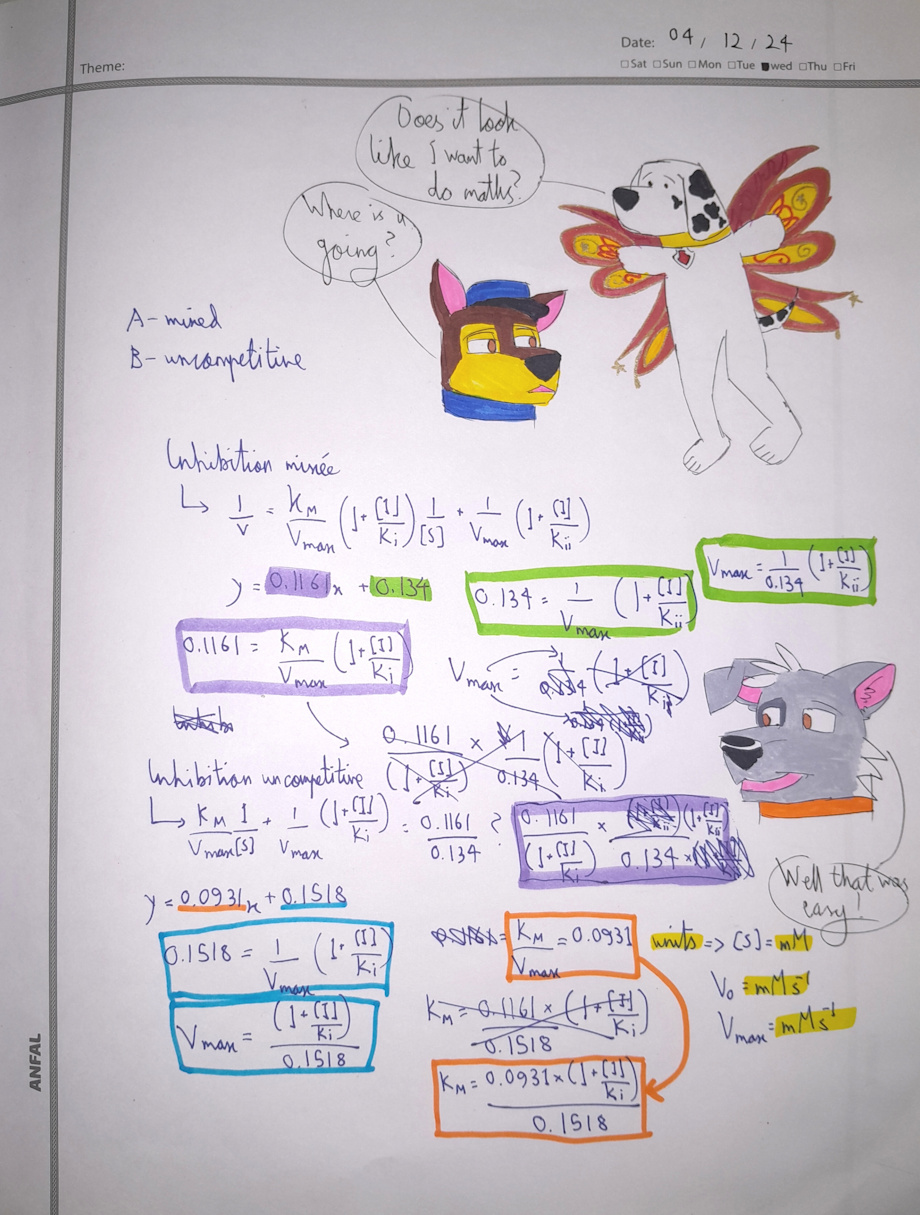 Date: 04 / 12 / 24
Theme:
□Sat □Sun □Mon □Tue ■Wed □Thu □Fri
Does it look
like I want to
do maths?
Where is u
going?
A - mixed
B - uncompetitive
Inhibition mixée
↳ 1/V = KM/Vmax (1+[I]/Ki) 1/[S] + 1/Vmax (1+[I]/Kii)
y = 0.1161x + 0.134
0.134 = 1/Vmax (1+[I]/Kii)
Vmax = 1/0.134 (1+[I]/Kii)
0.1161 = KM/Vmax (1+[I]/Ki)
Vmax = 1/0.134 (1+[I]/Kii)
0.1161/(1+[I]/Ki) × 1/0.134 (1+[I]/Ki)
Inhibition uncompetitive
↳ KM/Vmax 1/[S] + 1/Vmax (1+[I]/Ki) = 0.1161/0.134 ?
0.1161/(1+[I]/Ki) × (1+[I]/Kii)/0.134 ×
Well that was
easy!
y = 0.0931x + 0.1518
0.1518 = 1/Vmax (1+[I]/Ki)
KM/Vmax = 0.0931
units => [S] = mM
V₀ = mMs⁻¹
Vmax = mMs⁻¹
Vmax = (1+[I]/Ki)/0.1518
KM = 0.1161 × (1+[I]/Ki)/0.1518
KM = 0.0931 × (1+[I]/Ki)/0.1518
ANFAL